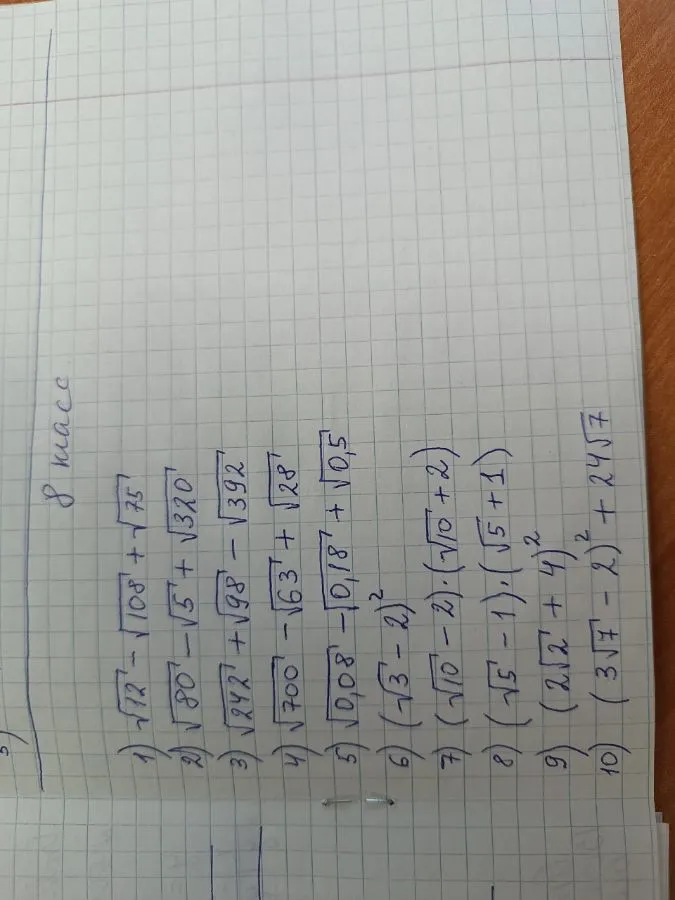 8 класс
1) √12 - √108 + √75
2) √80 - √5 + √320
3) √242 + √98 - √392
4) √700 - √63 + √28
5) √0,08 - √0,18 + √0,5
6) (√3 - 2)²
7) (√10 - 2)·(√10 + 2)
8) (√5 - 1)·(√5 + 1)
9) (2√2 + 4)²
10) (3√7 - 2)² + 24√7